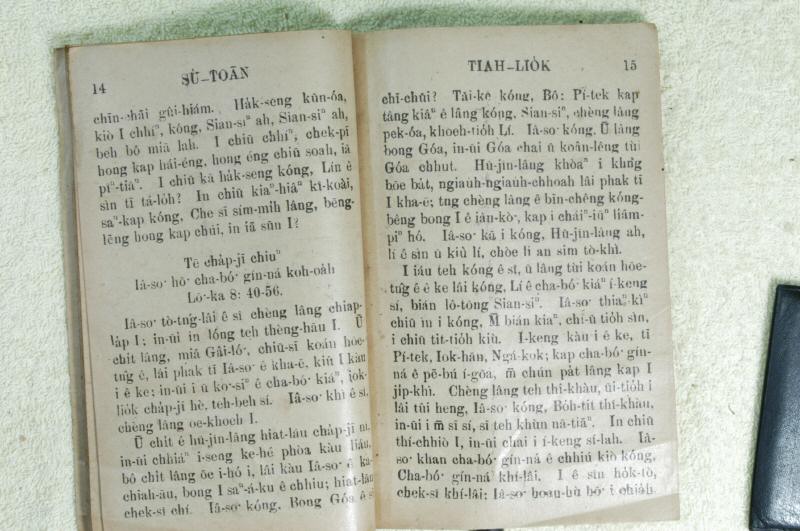 14
SÙ-TOĀN
chīn-chāi gûi-hiám. Ha̍k-seng kūn-óa,
kiò I chhíⁿ, kóng, Sian-siⁿ ah, Sian-siⁿ ah,
beh bô miā lah. I chiū chhíⁿ, chek-pī
hong kap hái-éng, hong éng chiū soah, iā
pîⁿ-tiāⁿ. I chiū kā ha̍k-seng kóng, Lín ê
sìn tī tá-lo̍h? In chiū kiaⁿ-hiâⁿ kî-koài,
saⁿ-kap kóng, Che sī sím-mih lâng, bēng-
lēng hong kap chúi, in iā sūn I?
Tē cha̍p-jī chiuⁿ
Iâ-so͘ hō͘ cha-bó͘ gín-ná koh-oa̍h
Lō͘-ka 8: 40-56.
Iâ-so͘ tò-tńg-lâi ê sî chèng lâng chiap-
la̍p I; in-ūi in lóng teh thèng-hāu I. Ū
chi̍t lâng, miâ Gâi-ló͘, chiū-sī koán hōe-
tn̂g ê, lâi phak tī Iâ-so͘ ê kha-ē, kiû I kàu
i ê ke; in-ūi i ū ko͘-siⁿ ê cha-bó͘ kiáⁿ, iok-
lio̍k cha̍p-jī hè, teh-beh sí. Iâ-so͘ khì ê sî,
chèng lâng oe-khoeh I.
Ū chi̍t ê hū-jîn-lâng hiat-láu cha̍p-jī nî,
in-ūi chhiáⁿ i-seng ke-hé phòa kàu liáu,
bô chi̍t lâng ōe i-hó i, lâi kàu Iâ-so͘ ê ka-
chiah-āu, bong I saⁿ-á-ku ê chhiu; hiat-láu
chek-sî chí. Iâ-so͘ kóng, Bong Góa ê sī
TIAH-LIO̍K
15
chī-chūi? Tāi-ke kóng, Bô: Pí-tek kap
tâng kiâⁿ ê lâng kóng, Sian-siⁿ, chèng lâng
pek-óa, khoeh-tio̍h Lí. Iâ-so͘ kóng, Ū lâng
bong Góa, in-ūi Góa chai ū koân-lêng tùi
Góa chhut. Hū-jîn-lâng khòaⁿ i khǹg
bōe ba̍t, ngiau̍h-ngiau̍h-chhoah lâi phak tī
I kha-ē; tng chèng lâng ê bīn-chêng kóng-
bêng bong I ê iân-kò͘, kap i cháiⁿ-iūⁿ liâm-
piⁿ hó. Iâ-so͘ kā i kóng, Hū-jîn-lâng ah,
lí ê sìn ū kiù lí, chòe lí an sim tò-khì.
I iáu teh kóng ê sî, ū lâng tùi koán hōe-
tn̂g ê ê ke lâi kóng, Lí ê cha-bó͘ kiáⁿ í-keng
sí, bián lô-tōng Sian-siⁿ. Iâ-so͘ thiaⁿ-kìⁿ
chiū ìn i kóng, M̄ bián kiaⁿ, chí-ū tio̍h sìn,
i chiū tit-tio̍h kiù. I-keng kàu i ê ke, tī
Pí-tek, Iok-hān, Ngá-kok; kap cha-bó͘ gín-
ná ê pē-bú í-gōa, m̄ chún pa̍t lâng kap I
ji̍p-khì. Chèng lâng teh thî-khàu, ūi-tio̍h i
lâi tûi heng, Iâ-so͘ kóng, Bo̍h-tit thî-khàu,
in-ūi i m̄ sī sí, sī teh khùn nā-tiāⁿ. In chiū
thí-chhiò I, in-ūi chai i í-keng sí-lah. Iâ-
so͘ khan cha-bó͘ gín-ná ê chhiú kiò kóng,
Cha-bó͘ gín-ná khí-lâi. I ê sîn ho̍k-tò,
chek-sî khí-lâi; Iâ-so͘ hoan-hù hō͘ i chia̍h